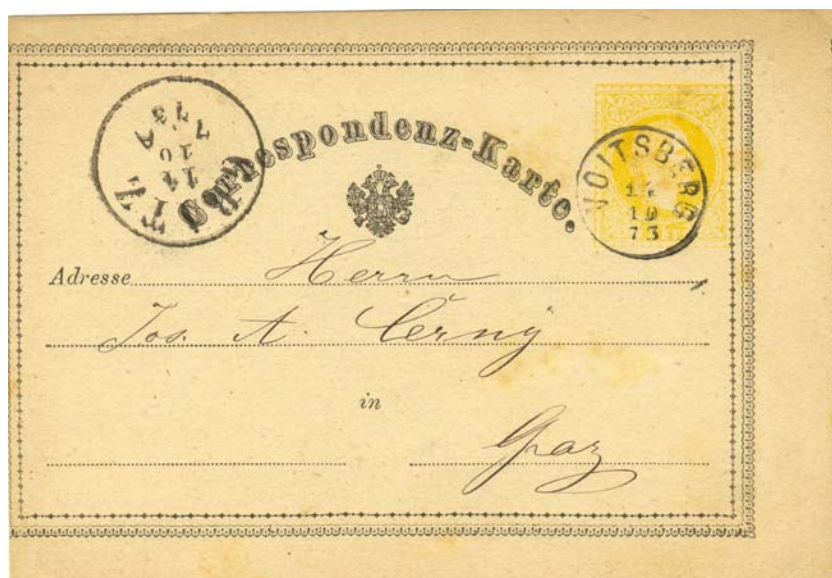 Correspondenz-Karte.
VOITSBERG
10
73
Adresse Herrn
Jos. A. Černý
in
Graz